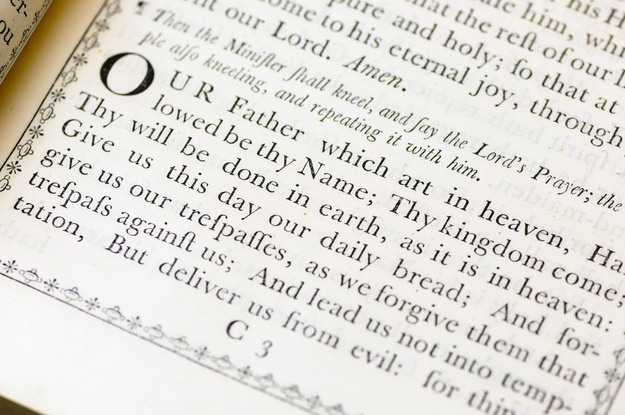 er-
ou
that the rest of our l
pure and holy; ſo that at
come to his eternal joy, through
our Lord. Amen.
¶ Then the Miniſter ſhall kneel, and ſay the Lord's Prayer; the
ple alſo kneeling, and repeating it with him.
OUR Father which art in heaven, Ha
lowed be thy Name; Thy kingdom come;
Thy will be done in earth, as it is in heaven:
Give us this day our daily bread; And for-
give us our treſpaſſes, as we forgive them that
treſpaſs againſt us; And lead us not into temp-
tation, But deliver us from evil: for thin
C 3